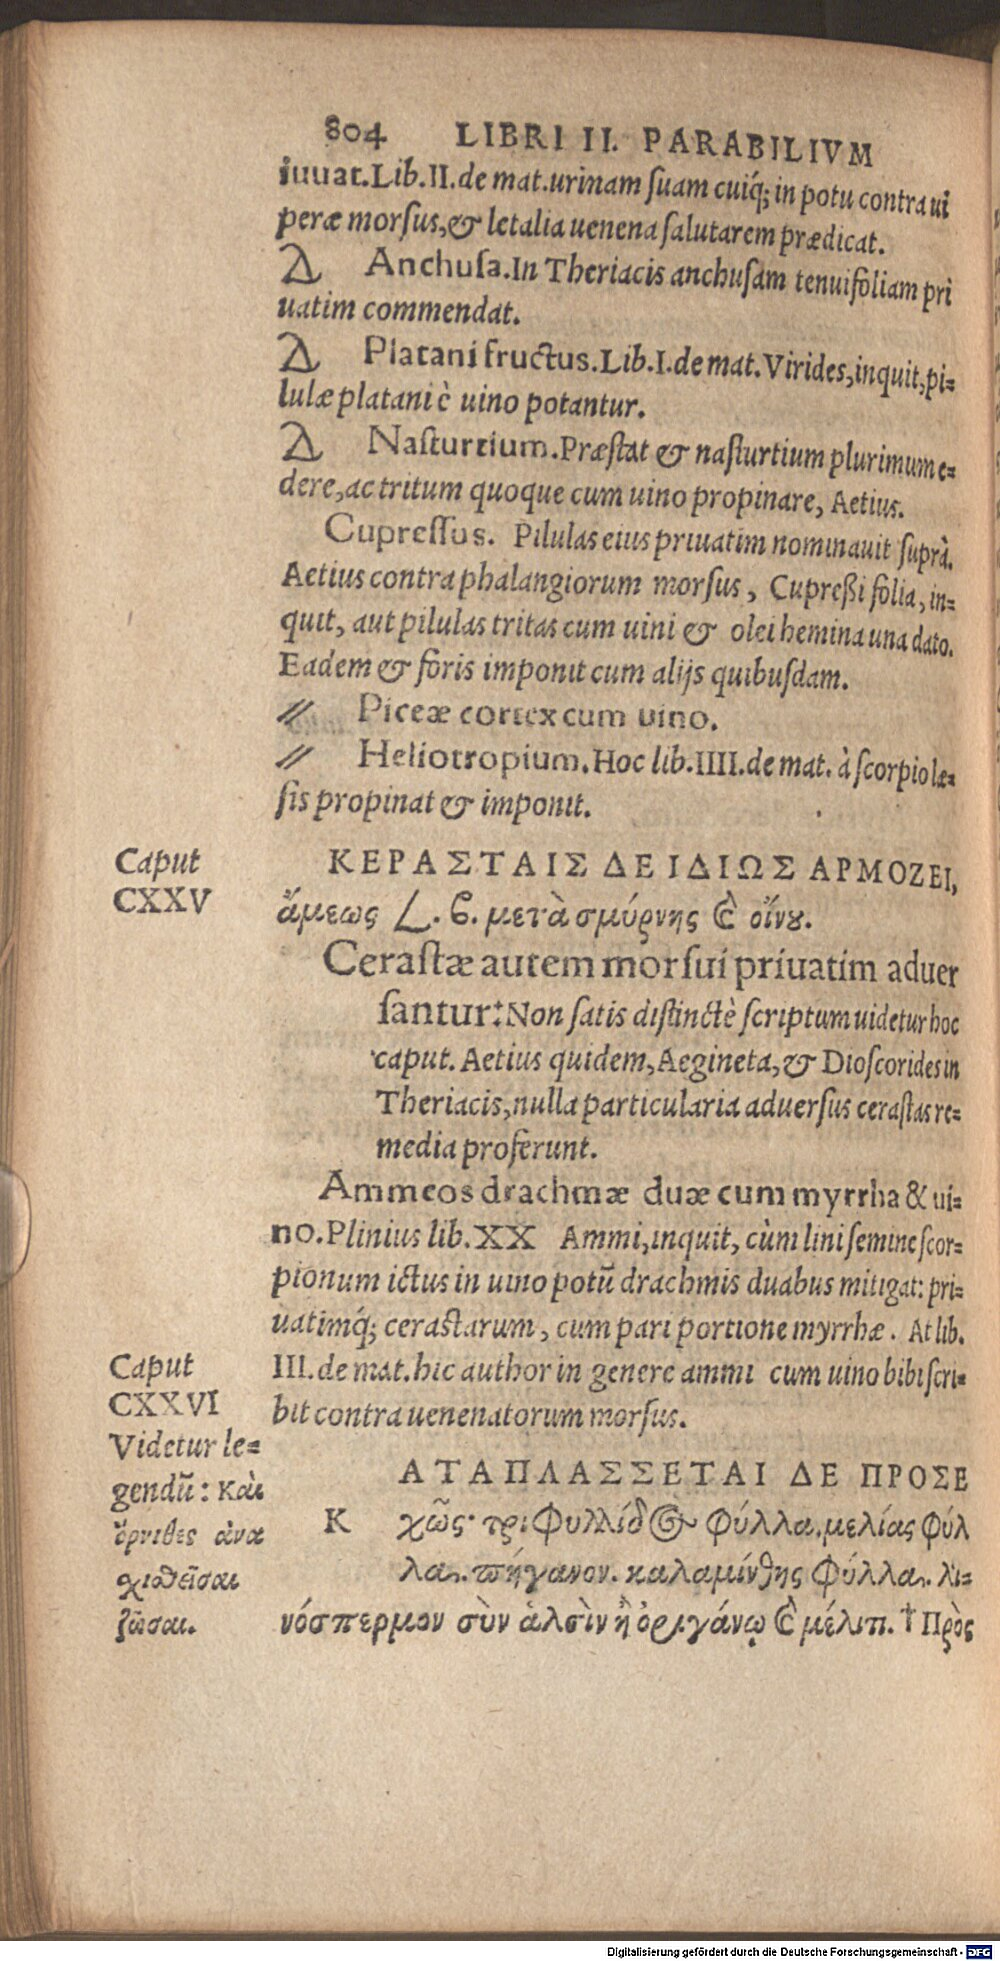 804 LIBRI II. PARABILIVM
iuuat. Lib. II. de mat. urinam suam cuiq́; in potu contra ui
peræ morsus, & letalia uenena salutarem prædicat.
Anchusa. In Theriacis anchusam tenuifoliam pri
uatim commendat.
Platani fructus. Lib. I. de mat. Virides, inquit, pi=
lulæ platani è uino potantur.
Nasturtium. Præstat & nasturtium plurimum e=
dere, ac tritum quoque cum uino propinare, Aetius.
Cupressus. Pilulas eius priuatim nominauit suprà.
Aetius contra phalangiorum morsus, Cupreßi folia, in=
quit, aut pilulas tritas cum uini & olei hemina una dato.
Eadem & foris imponit cum alijs quibusdam.
// Piceæ cortex cum uino.
// Heliotropium. Hoc lib. IIII. de mat. à scorpio læ=
sis propinat & imponit.
Caput
CXXV
ΚΕΡΑΣΤΑΙΣ ΔΕ ΙΔΙΩΣ ΑΡΜΟΖΕΙ,
ἄμεως 𐅻. ϐ. μετὰ σμύρνης καὶ οἴνου.
Cerastæ autem morsui priuatim aduer
santur: Non satis distinctè scriptum uidetur hoc
caput. Aetius quidem, Aegineta, & Dioscorides in
Theriacis, nulla particularia aduersus cerastas re=
media proferunt.
Ammeos drachmæ duæ cum myrrha & ui=
no. Plinius lib. XX Ammi, inquit, cùm lini semine scor=
pionum ictus in uino potũ drachmis duabus mitigat: pri=
uatimq́; cerastarum, cum pari portione myrrhæ. At lib.
III. de mat. hic author in genere ammi cum uino bibi scri=
bit contra uenenatorum morsus.
Caput
CXXVI
Videtur le=
gendũ: Καὶ
ὄρνιθες ἀνα
χιθεῖσαι
ζῶσαι.
ΑΤΑΠΛΑΣΣΕΤΑΙ ΔΕ ΠΡΟΣΕ
Κ χῶς· τριφυλλίδος φύλλα. μελίας φύλ
λα. πήγανον. καλαμίνθης φύλλα. λι=
νόσπερμον σὺν ἁλσὶν ἢ ὀριγάνῳ καὶ μέλιτι. † Πρὸς
Digitalisierung gefördert durch die Deutsche Forschungsgemeinschaft - DFG